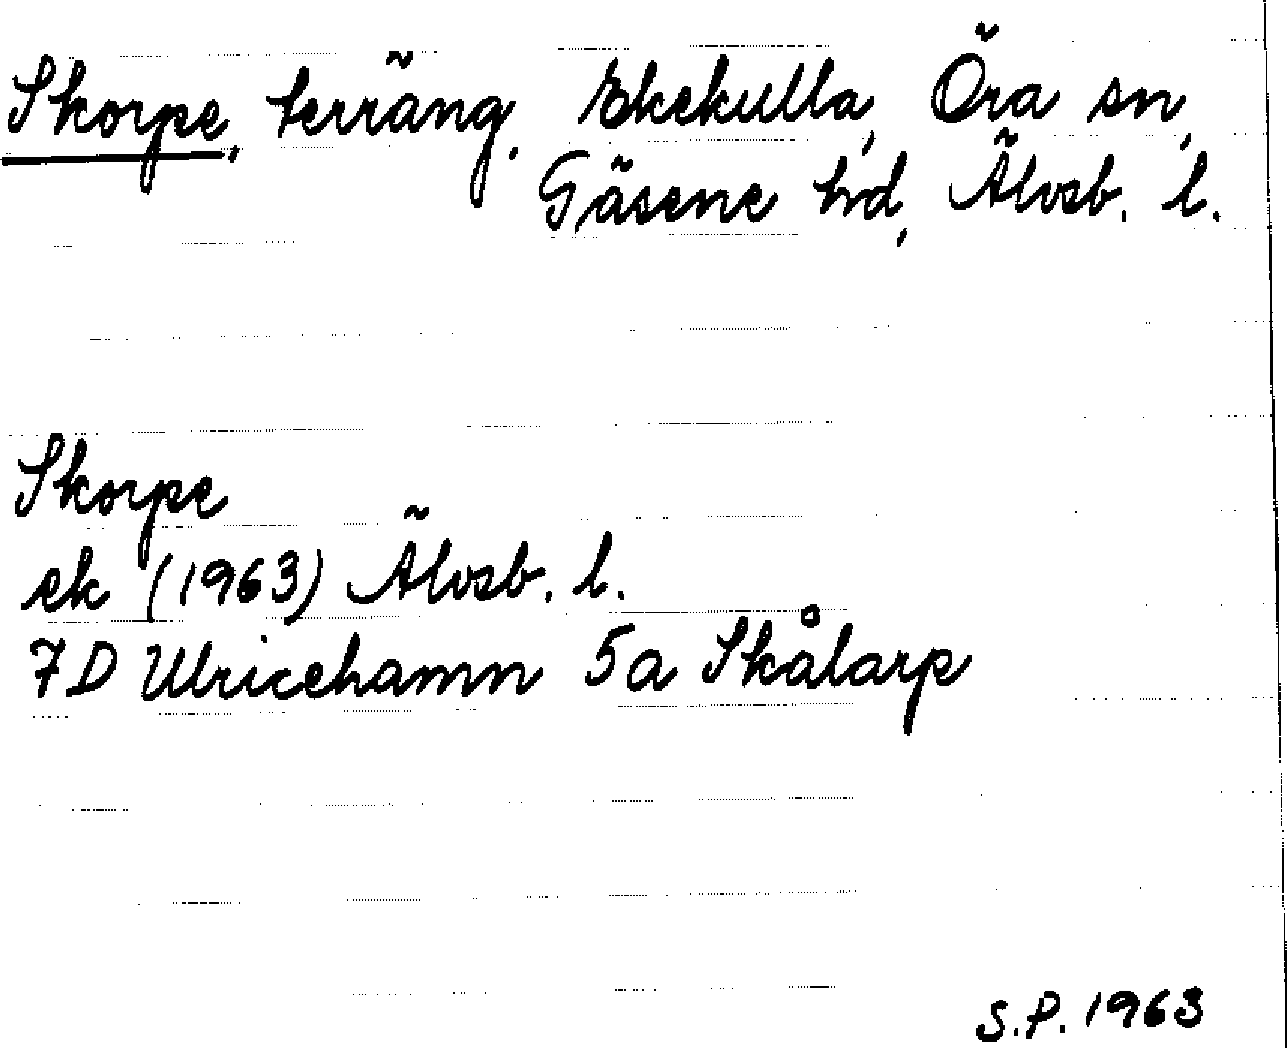 Skorpe, terräng. Ekekulla, Öra sn,
Gäsene hd, Älvsb. l.
Skorpe
ek (1963) Älvsb. l.
7D Ulricehamn 5a Skålarp
S.P. 1963